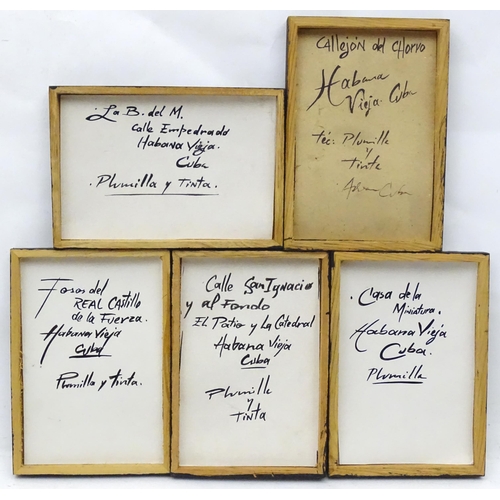 La B. del M.
Calle Empedrado
Habana Vieja.
Cuba
. Plumilla y Tinta.
Callejón del Chorro
Habana
Vieja. Cuba
téc: Plumilla
y
tinta
Cuba
Fosos del
REAL Castillo
de la Fuerza.
Habana Vieja
Cuba
Plumilla y tinta.
Calle San Ignacio
y al Fondo
El Patio y La Catedral
Habana Vieja
Cuba
Plumilla
y
Tinta
. Casa de la
Miniatura.
Habana Vieja
Cuba.
Plumilla